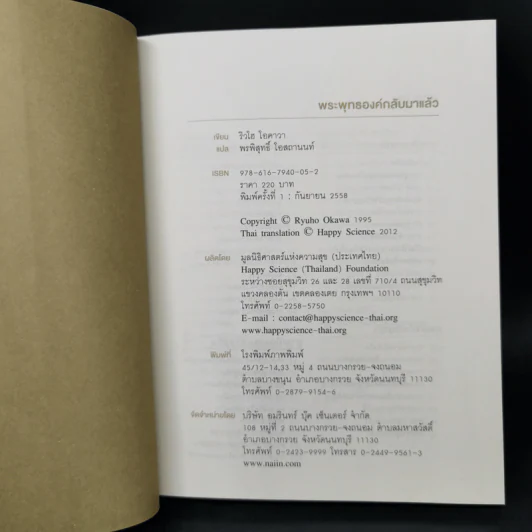 พระพุทธองค์กลับมาแล้ว
เขียน ริวโฮ โอคาวา
แปล พรพิสุทธิ์ โอสถานนท์
ISBN 978-616-7940-05-2
ราคา 220 บาท
พิมพ์ครั้งที่ 1 : กันยายน 2558
Copyright © Ryuho Okawa 1995
Thai translation © Happy Science 2012
ผลิตโดย มูลนิธิศาสตร์แห่งความสุข (ประเทศไทย)
Happy Science (Thailand) Foundation
ระหว่างซอยสุขุมวิท 26 และ 28 เลขที่ 710/4 ถนนสุขุมวิท
แขวงคลองตัน เขตคลองเตย กรุงเทพฯ 10110
โทรศัพท์ 0-2258-5750
E-mail : contact@happyscience-thai.org
www.happyscience-thai.org
พิมพ์ที่ โรงพิมพ์ภาพพิมพ์
45/12-14,33 หมู่ 4 ถนนบางกรวย-จงถนอม
ตำบลบางขนุน อำเภอบางกรวย จังหวัดนนทบุรี 11130
โทรศัพท์ 0-2879-9154-6
จัดจำหน่ายโดย บริษัท อมรินทร์ บุ๊ค เซ็นเตอร์ จำกัด
108 หมู่ที่ 2 ถนนบางกรวย-จงถนอม ตำบลมหาสวัสดิ์
อำเภอบางกรวย จังหวัดนนทบุรี 11130
โทรศัพท์ 0-2423-9999 โทรสาร 0-2449-9561-3
www.naiin.com